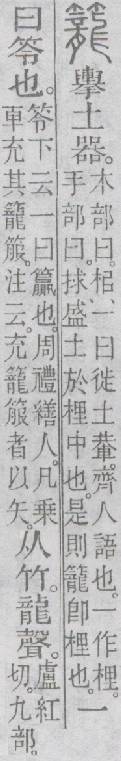 籠擧土器。木部曰。㭒、一曰徙土輂。齊人語也。一作梩。手部曰。捄、盛土於梩中也。是則籠卽梩也。一
曰笭也。笭下云一曰籯也。周禮繕人。凡乗車充其籠箙。注云。充籠箙者以矢。从竹。龍聲。盧紅切。九部。